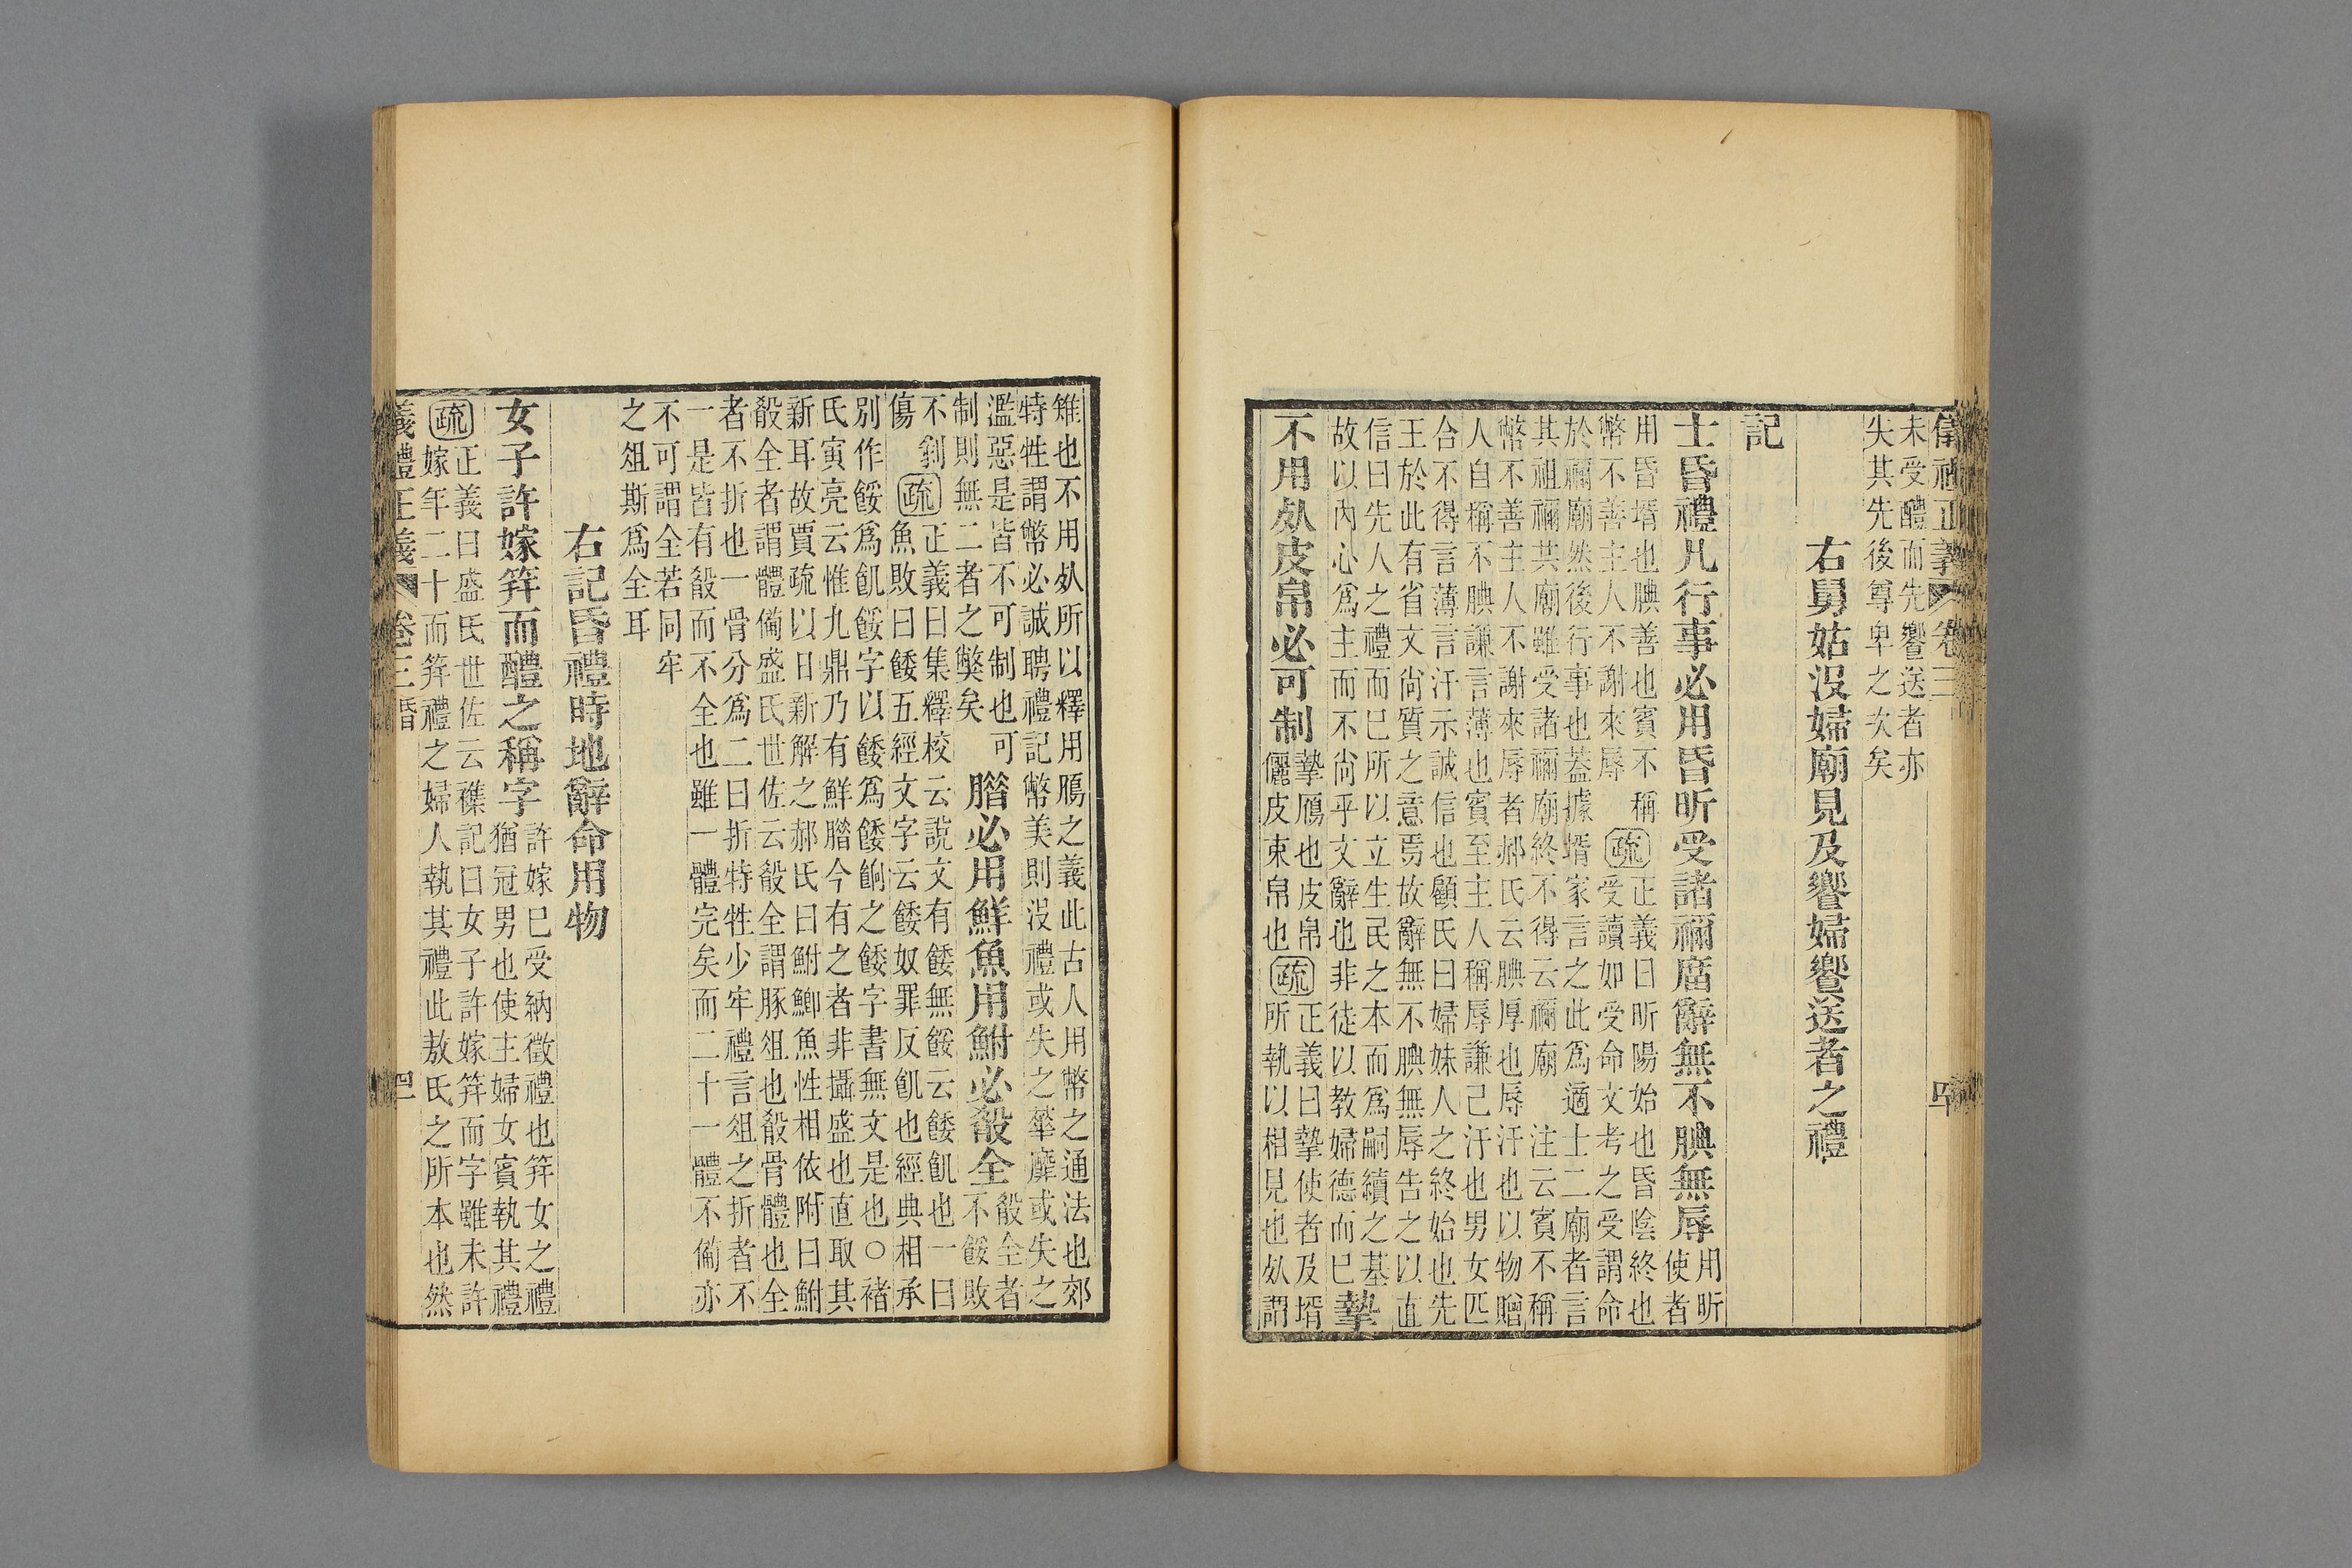 儀禮正義 卷三 四
未受醴而先饗送者亦
失其先後尊卑之次矣
右舅姑沒婦廟見及饗婦饗送者之禮
記
士昏禮凡行事必用昏昕受諸禰廟辭無不腆無辱用昕
使者
用昏壻也腆善也賓不稱疏正義曰昕陽始也昏陰終也
幣不善主人不謝來辱受讀如受命文考之受謂命
於禰廟然後行事也蓋據壻家言之此爲適士二廟者言
其祖禰共廟雖受諸禰廟終不得云禰廟注云賓不稱
幣不善主人不謝來辱者郝氏云腆厚也辱汙也以物贈
人自稱不腆謙言薄也賓至主人稱辱謙己汙也男女匹
合不得言薄言汙示誠信也顧氏曰婦妹人之終始也先
王於此有省文尚質之意焉故辭無不腆無辱告之以直
信曰先人之禮而已所以立生民之本而爲嗣續之基
故以內心爲主而不尚乎文辭也非徒以教婦德而已摯
不用𣦸皮帛必可制摯鴈也皮帛疏正義曰摯使者及壻
儷皮束帛也所執以相見也𣦸謂
雉也不用𣦸所以釋用鴈之義此古人用幣之通法也郊
特牲謂幣必誠聘禮記幣美則沒禮或失之華靡或失之
濫惡是皆不可制也可
制則無二者之弊矣腊必用鮮魚用鮒必殽全殽全者
不餒敗
不剝
傷疏正義曰集釋校云說文有餧無餒云餧飢也一曰
魚敗曰餧五經文字云餧奴罪反飢也經典相承
別作餒爲飢餒字以餧爲餧餉之餧字書無文是也〇褚
氏寅亮云惟九鼎乃有鮮腊今有之者非攝盛也直取其
新耳故賈疏以日新解之郝氏曰鮒鯽魚性相依附曰鮒
殽全者謂體備盛氏世佐云殽全謂豚俎也殽骨體也全
者不折也一骨分爲二曰折特牲少牢禮言俎之折者不
一是皆有殽而不全也雖一體完矣而二十一體不備亦
不可謂全若同牢
之俎斯爲全耳
右記昏禮時地辭命用物
女子許嫁筓而醴之稱字許嫁已受納徵禮也筓女之禮
猶冠男也使主婦女賓執其禮
疏正義曰盛氏世佐云襍記曰女子許嫁筓而字雖未許
嫁年二十而筓禮之婦人執其禮此敖氏之所本也然
義禮正義 卷三昏 四